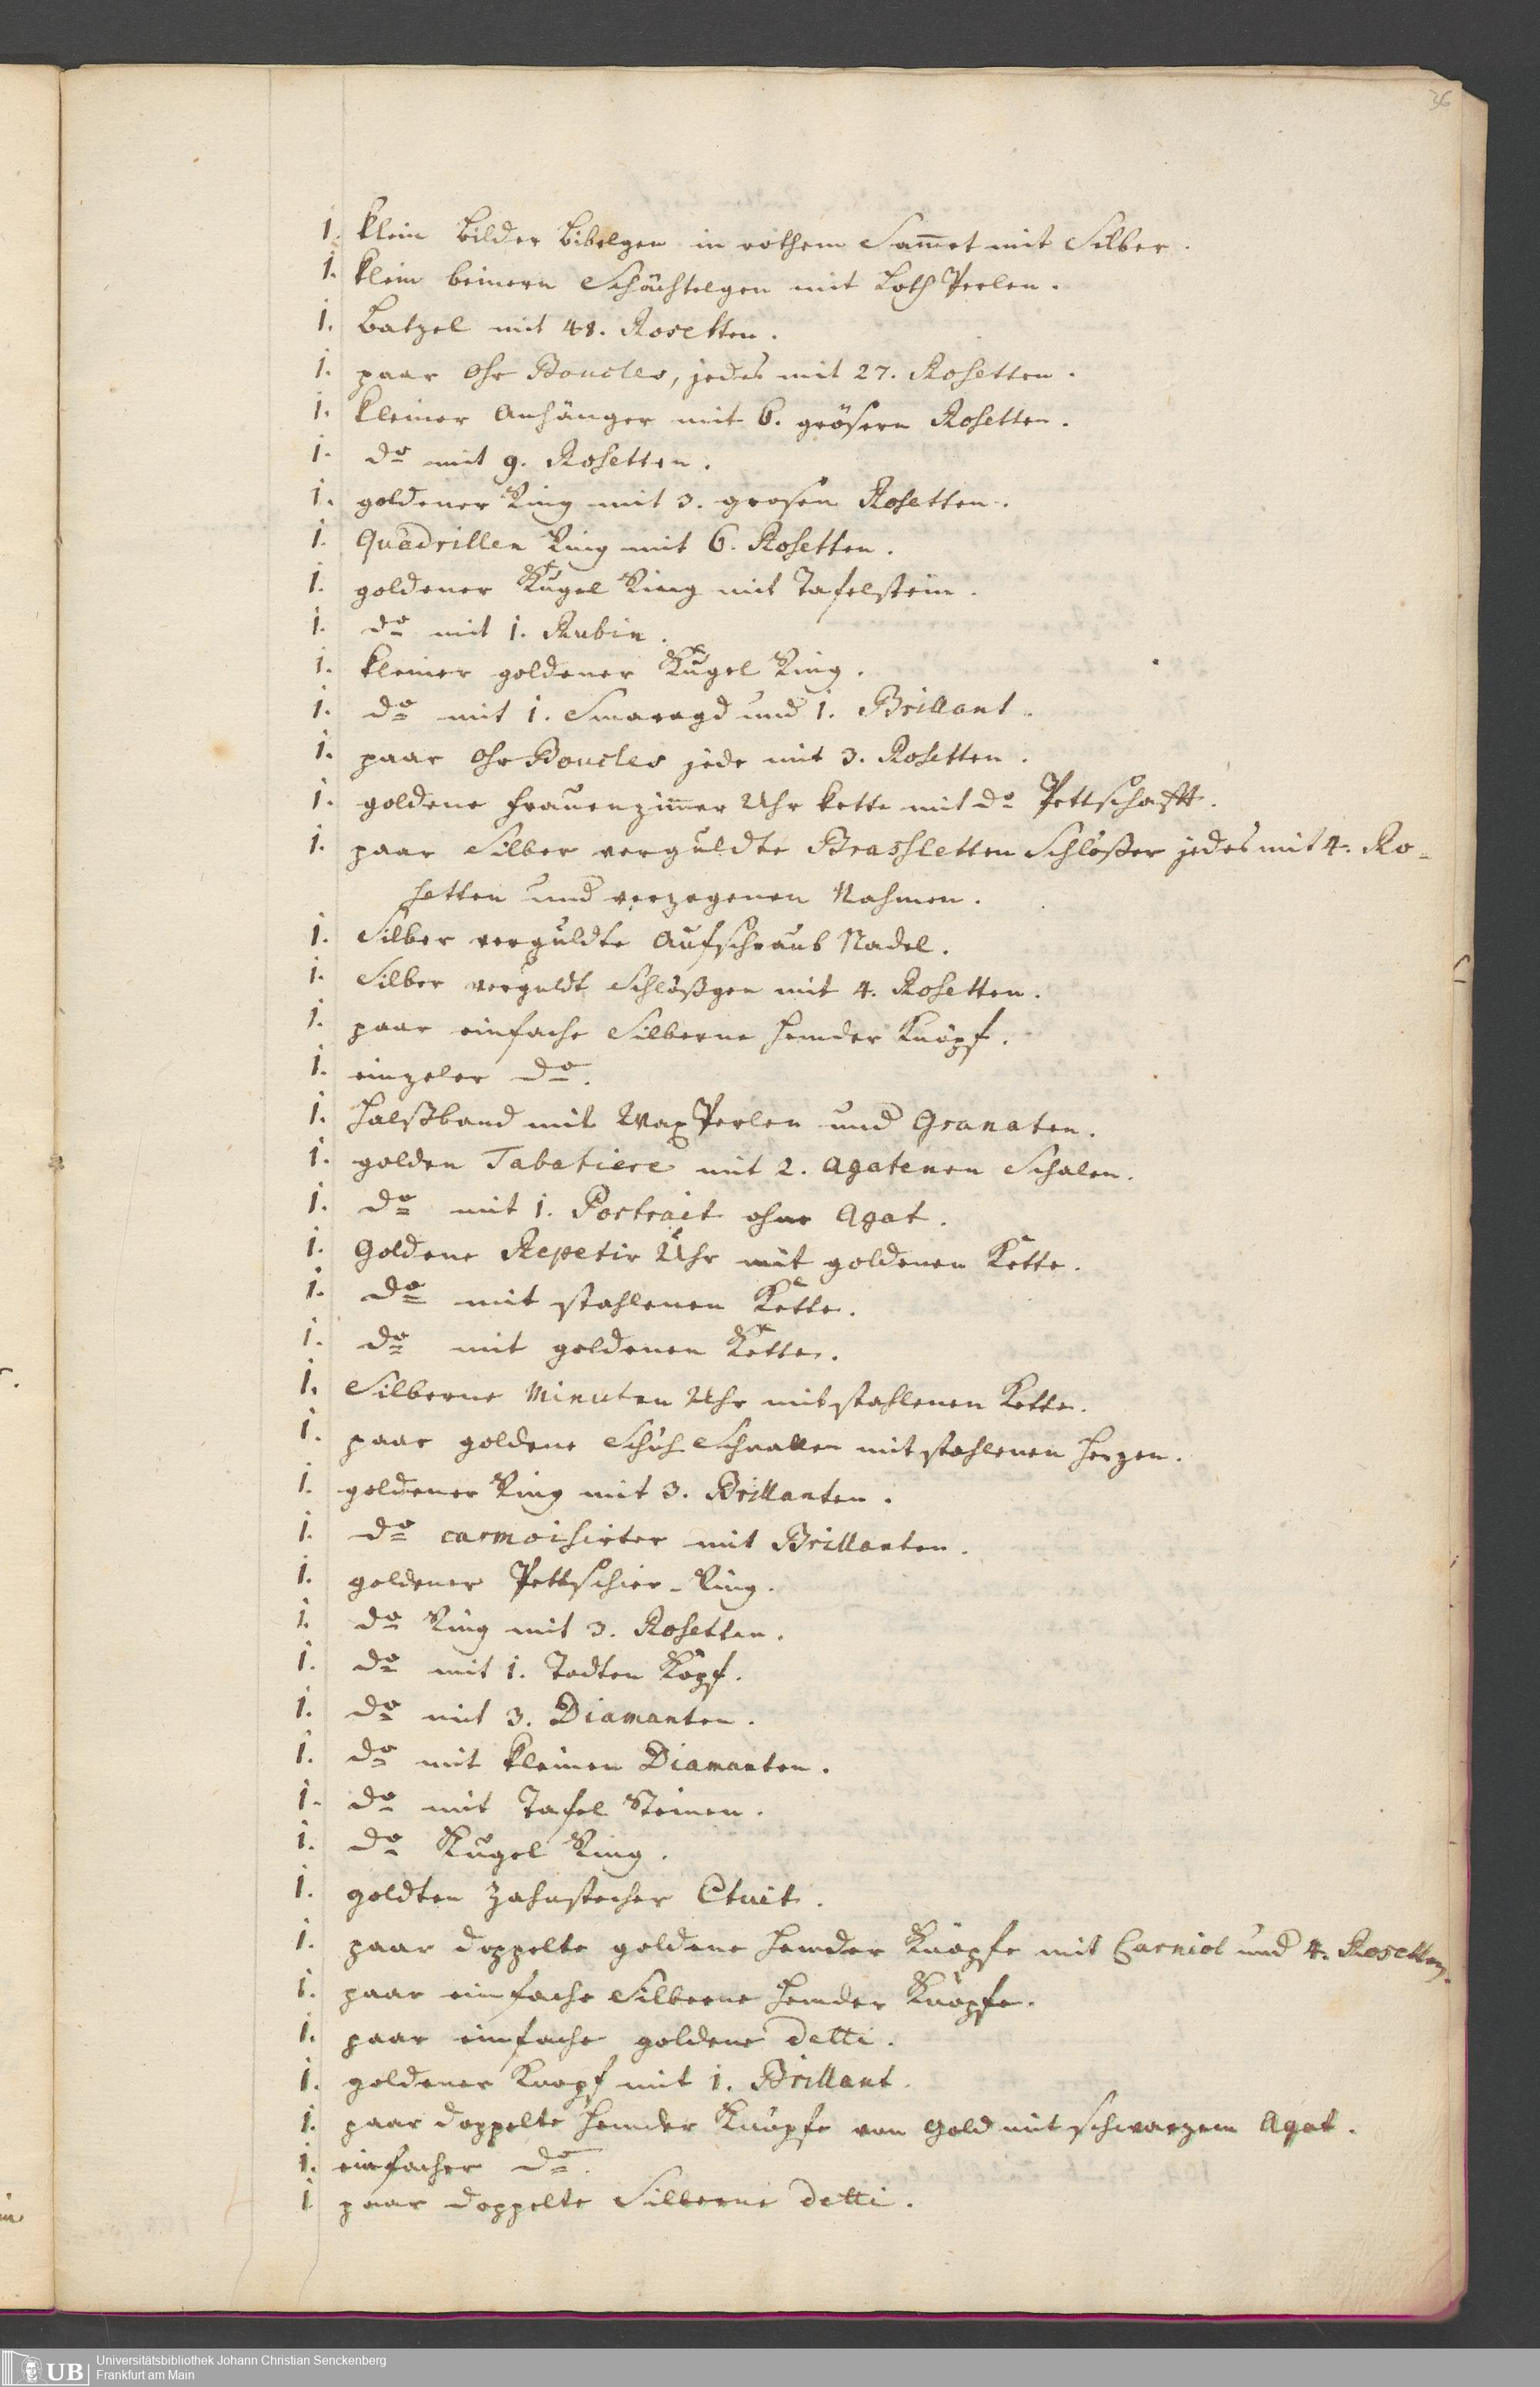 36
1. klein Bilder Bibelgen in rothem Sam̄et mit Silber.
1. klein beinern Schächtelgen mit Loth Perlen.
1. Batzel mit 48. Rosetten.
1. paar Ohr Boucles, jedes mit 27. Rosetten.
1. kleiner Anhänger mit 6. grösern Rosetten.
1. do mit 9. Rosetten.
1. goldener Ring mit 3. grosen Rosetten.
1. Quadrillen Ring mit 6. Rosetten.
1. goldener Kugel Ring mit Tafelstein.
1. do mit 1. Rubin.
1. kleiner goldener Kugel Ring.
1. do mit 1. Smaragd und 1. Brillant.
1. paar Ohr Boucles jede mit 3. Rosetten.
1. goldene Frauenzim̄er Uhr kette mit do Pettschafft.
1. paar Silber verguldte Brasletten Schlößer jedes mit 4. Ro-
setten und verzogenen Nahmen.
1. Silber verguldte Aufschraub Nadel.
1. Silber verguldt Schlößgen mit 4. Rosetten.
1. paar einfache Silberne Hemder Knöpf.
1. einzeler do.
1. Halßband mit Wax Perlen und Granaten.
1. golden Tabatiere mit 2. Agatenen Schalen.
1. do mit 1. Portrait ohne Agat.
1. Goldene Repetir Uhr mit goldenen Kette.
1. do mit stahlenen Kette.
1. do mit goldenen Kette.
1. Silberne Minuten Uhr mit stahlenen Kette.
1. paar goldene Schuh Schnallen mit stahlenen Herzen.
1. goldener Ring mit 3. Brillanten.
1. do carmoisirter mit Brillanten.
1. goldener Pettschier-Ring.
1. do Ring mit 3. Rosetten.
1. do mit 1. Todten Kopf.
1. do mit 3. Diamanten.
1. do mit kleinen Diamanten.
1. do mit Tafel Steinen.
1. do Kugel Ring.
1. goldten Zahnstecher Etuit.
1. paar doppelte goldene Hemder Knöpfe mit Carniol und 4. Rosetten.
1. paar einfache Silberne Hemder Knöpfe.
1. paar einfache goldene detti.
1. goldener Knopf mit 1. Brillant.
1. paar doppelte Hemder Knöpfe von Gold mit schwarzem Agat.
1. einfacher do.
1 paar doppelte Silberne detti.
UB
Universitätsbibliothek Johann Christian Senckenberg
Frankfurt am Main